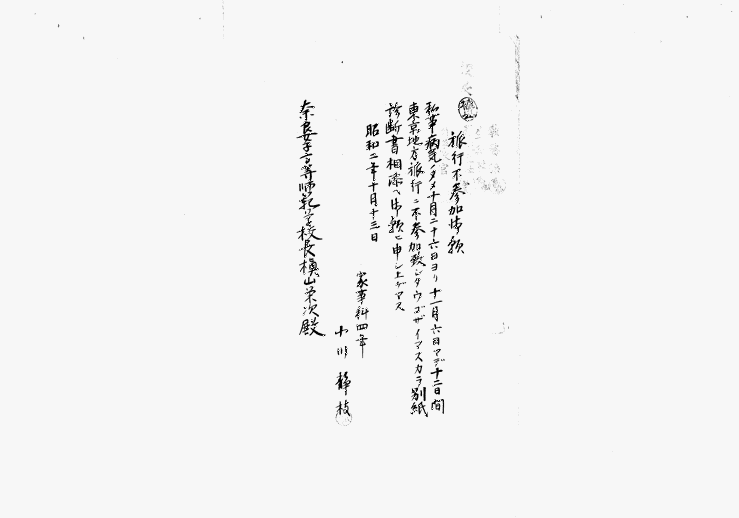 旅行不参加御願
私事病気ノタメ十月二十六日ヨリ十一月六日マデ十二日間
東京地方旅行ニ不参加致シタウゴザイマスカラ別紙
診断書相添ヘ御願ヒ申シ上ゲマス
昭和二年十月十三日
家事科四年
小川静枝
奈良女子高等師範学校長槇山栄次殿